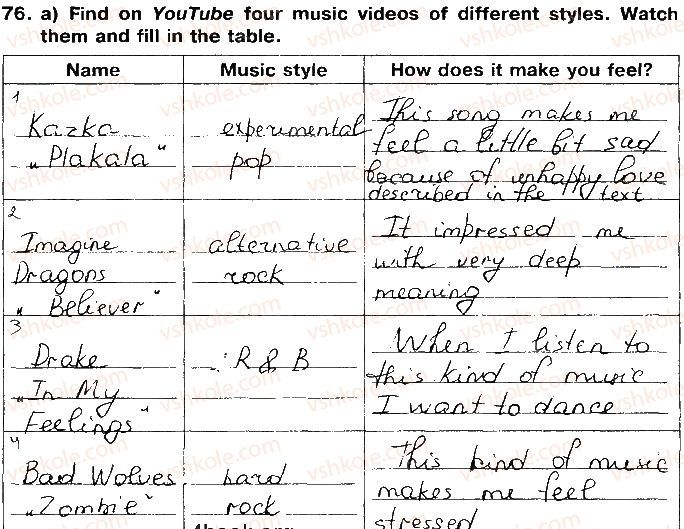 76. a) Find on YouTube four music videos of different styles. Watch
them and fill in the table.
Name Music style How does it make you feel?
1
Kazka
„Plakala“
experimental
pop
This song makes me
feel a little bit sad
because of unhappy love
described in the text
2
Imagine
Dragons
„Believer“
alternative
rock
It impressed me
with very deep
meaning
3
Drake
„In My
Feelings“
R & B
When I listen to
this kind of music
I want to dance
4
Bad Wolves
„Zombie“
hard
rock
This kind of music
makes me feel
stressed
vshkole.com